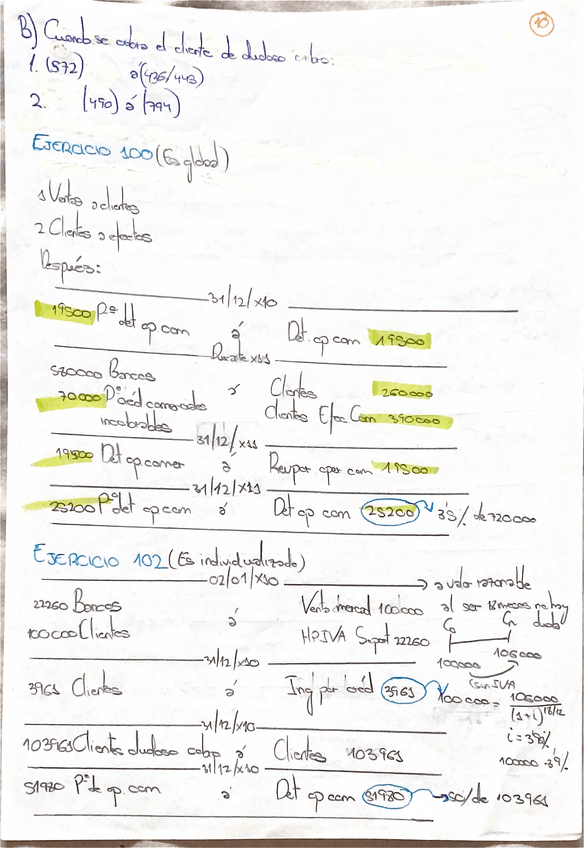 10
B) Cuando se cobra el cliente de dudoso cobro:
1. (572) a (436/443)
2. (490) a (794)
EJERCICIO 100 (Es global)
1 Ventas a clientes
2 Clientes a efectos
Después:
31/12/x10
19500 Pª det op com a Det. op com 19500
Durante x11
580000 Bancos a Clientes 260000
70000 Pª créd comerciales incobrables Clientes Efec Com 390000
31/12/x11
19500 Det op comer a Rev por oper com 19500
31/12/x11
25200 Pª det op com a Det op com 25200 3'5% de 720000
EJERCICIO 102 (Es individualizado)
02/01/x10 → a valor razonable
22260 Bancos a Venta mercad 100000 al ser 18 meses no hay duda
100000 Clientes HP IVA 22260
C0 Cn
100000 106000
(sin IVA)
31/12/x10
3961 Clientes a Ing por créd 3961
100000 = 106000 / (1+i)^18/12
i = 3'9%
31/12/x10
103961 Clientes dudoso cobro a Clientes 103961
31/12/x10
51980 Pª de op. com a Det op com 51980 → 50% de 103961